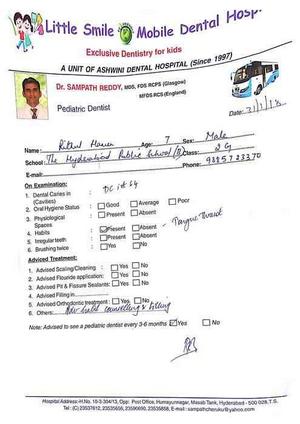 Little Smile Mobile Dental Hosp
Exclusive Dentistry for kids
A UNIT OF ASHWINI DENTAL HOSPITAL (Since 1997)
Dr. SAMPATH REDDY, MDS, FDS RCPS (Glasgow)
MFDS RCS (England)
Pediatric Dentist
Date:
Name: Age: 7 Sex: Male
School: The Hyderabad Public School Class: 2 G
E-mail: 
On Examination:
1. Dental Caries in
(Cavities)
2. Oral Hygiene Status : Good Average Poor
3. Physiological : Present Absent
Spaces
4. Habits : Present Absent - Tongue Thrust
5. Irregular teeth : Present Absent
6. Brushing twice : Yes No
Adviced Treatment:
1. Advised Scaling/Cleaning : Yes No
2. Advised Flouride application: Yes No
3. Advised Pit & Fissure Sealants: Yes No
4. Advised Filling in
5. Advised Orthodontic treatment : Yes No
6. Others: counselling & filling
Note: Advised to see a pediatric dentist every 3-6 months Yes No
Hospital Address:-H.No. 10-3-304/13, Opp: Post Office, Humayunnagar, Masab Tank, Hyderabad - 500 028,T.S.
Tel: (C) 23537612, 23535656, 23596690, 23535858, E-mail : sampathcheruku@yahoo.com